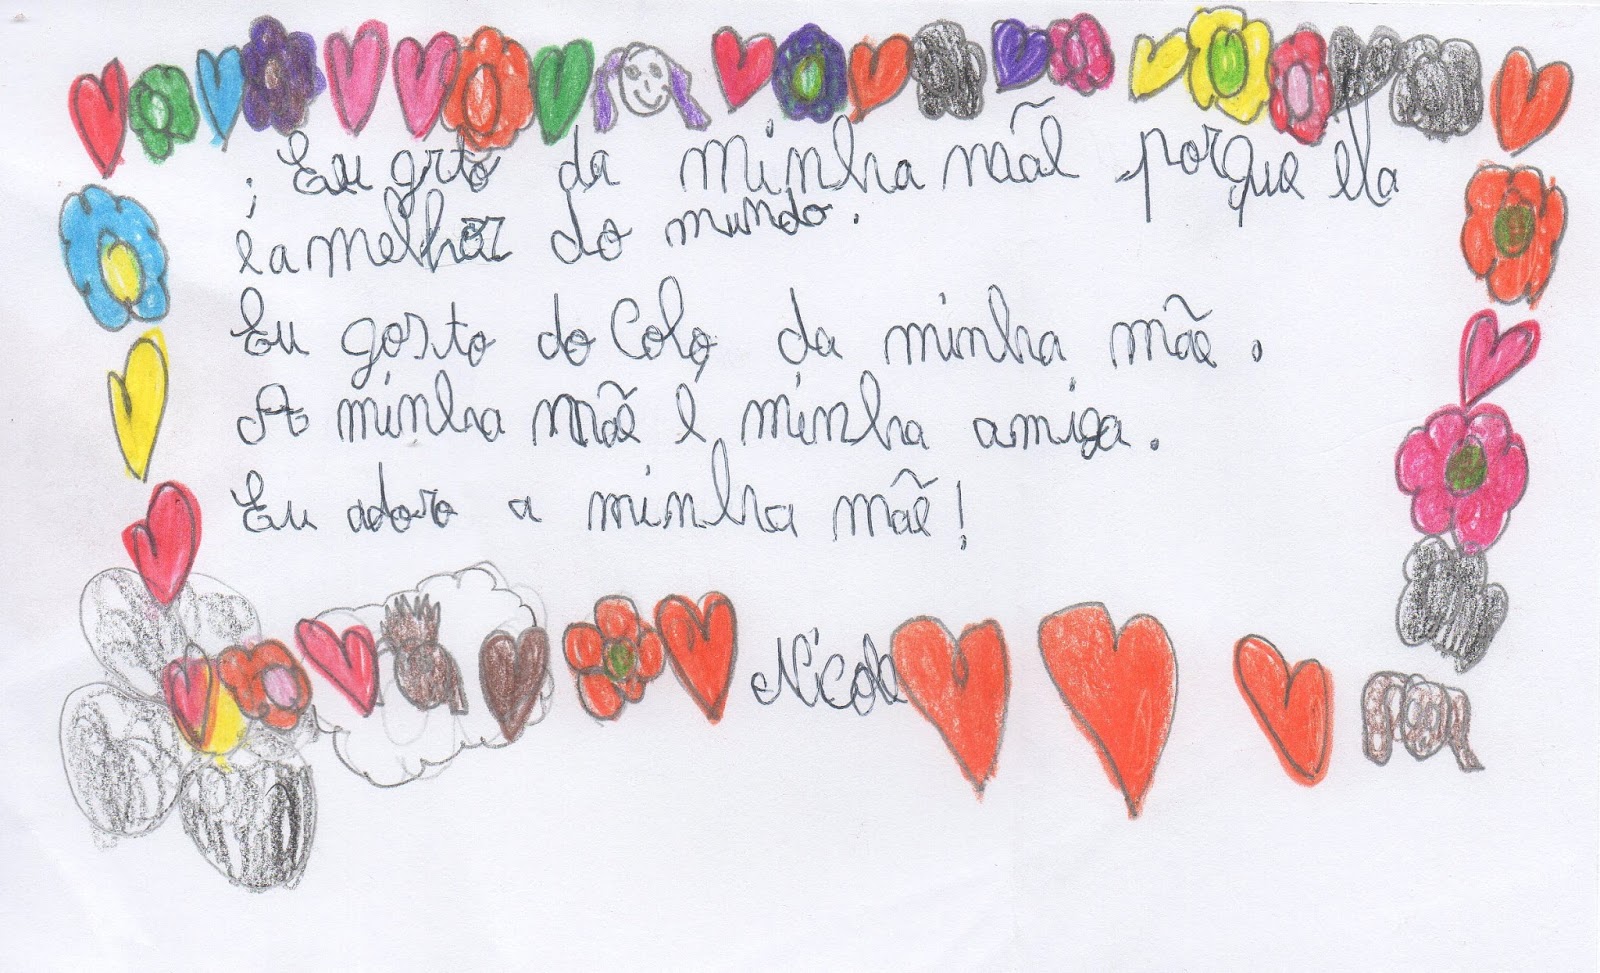 Eu grto da minha mãe porque ela
é a melhor do mundo.
Eu gosto do Colo da minha mãe.
A minha mãe é minha amiga.
Eu adoro a minha mãe!
Nicole